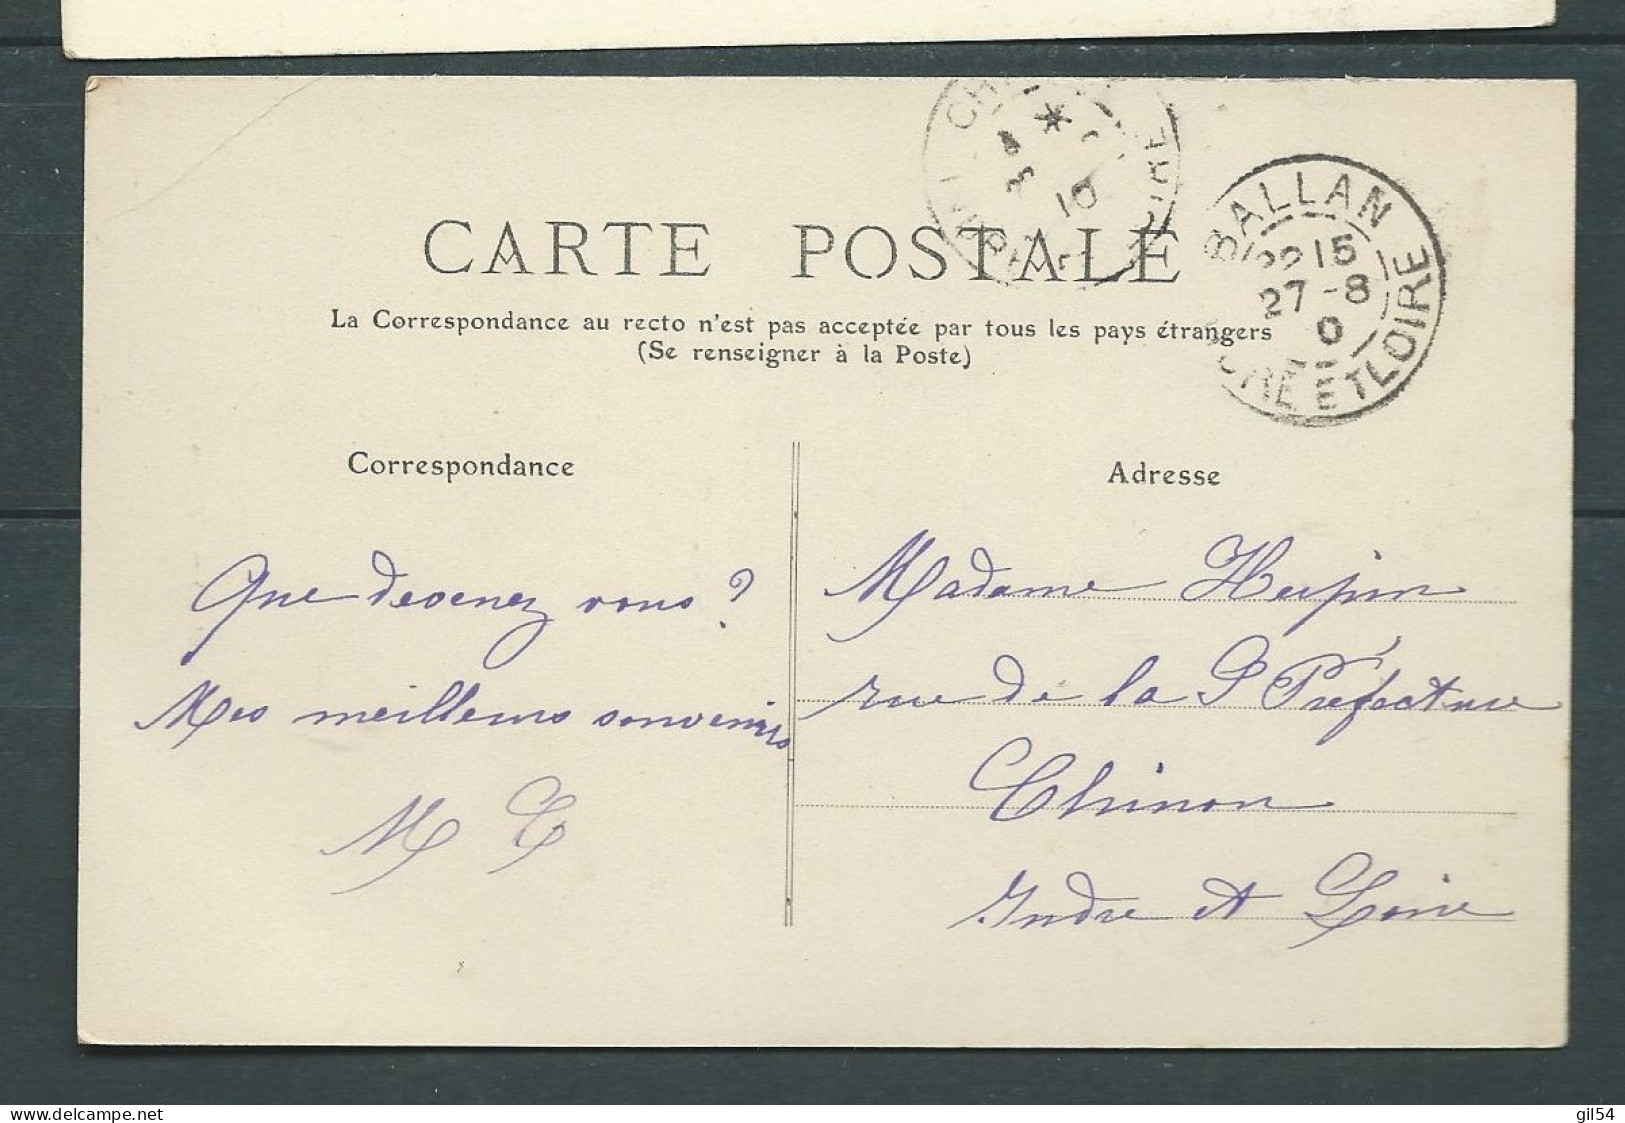 CARTE POSTALE
La Correspondance au recto n'est pas acceptée par tous les pays étrangers
(Se renseigner à la Poste)
BALLAN
22 15
27 -8
0
INDRE ET LOIRE
10
Correspondance
Adresse
Que devenez vous?
Mes meilleurs souvenirs
Madame
rue de la S Préfecture
Chinon
Indre et Loire
www.delcampe.net
gil54